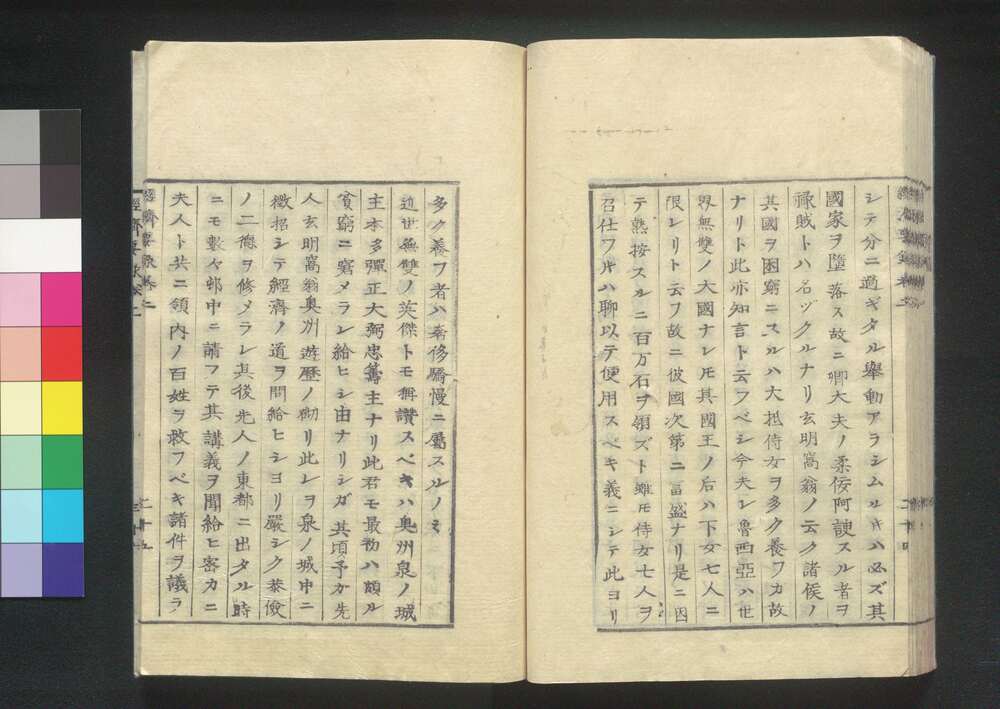 シテ分ニ過ギタル舉動アラシムル𪜈ハ必ズ其
國家ヲ墮落ス故ニ卿大夫ノ柔佞阿諛スル者ヲ
祿賊トハ名ヅクルナリ玄明窩翁ノ云ク諸侯ノ
其國ヲ困窮ニスルハ大抵侍女ヲ多ク養フカ故
ナリト此亦知言ト云フベシ今夫レ魯西亞ハ世
界無雙ノ大國ナレ𪜈其國王ノ后ハ下女七人ニ
限レリト云フ故ニ彼國次第ニ富盛ナリ是ニ因
テ熟按スルニ百万石ヲ領ズト雖𪜈侍女七人ヲ
召仕フ𪜈ハ聊以テ便用スベキ義ニシテ此ヨリ
多ク養フ者ハ奢侈驕慢ニ屬スルノミ
近世無雙ノ英傑トモ稱讃スベキハ奥州泉ノ城
主本多彈正大弼忠籌主ナリ此君モ最初ハ頗ル
貧窮ニ窘メラレ給ヒシ由ナリシガ其頃予ガ先
人玄明窩翁奥州遊歴ノ砌リ此レヲ泉ノ城中ニ
徴招シテ經濟ノ道ヲ問給ヒシヨリ嚴シク恭儉
ノ二德ヲ修メラレ其後先人ノ東都ニ出タル時
ニモ數々邸中ニ請フテ其講義ヲ聞給ヒ密カニ
夫人ト共ニ領内ノ百姓ヲ救フベキ諸件ヲ議ラ
經濟要錄卷之二
二十五